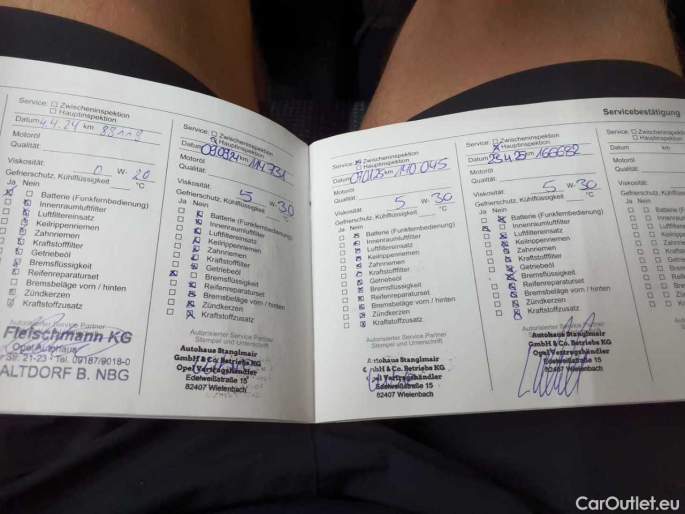 Service: Zwischeninspektion
Hauptinspektion
Datum 4.4.24 km 88119
Motoröl
Qualität:
Viskosität: 0 W- 20
Gefrierschutz, Kühlflüssigkeit °C
Ja Nein
Batterie (Funkfernbedienung)
Innenraumluftfilter
Luftfiltereinsatz
Keilrippenriemen
Zahnriemen
Kraftstofffilter
Getriebeöl
Bremsflüssigkeit
Reifenreparaturset
Bremsbeläge vorn / hinten
Zündkerzen
Kraftstoffzusatz
Autorisierter Service Partner
Fleischmann KG
Opel Autohaus
39, 21-23 · Tel. 09187/9018-0
ALTDORF B. NBG
Service: Zwischeninspektion
Hauptinspektion
Datum 09.09.24 km 114.731
Motoröl
Qualität:
Viskosität: 5 W- 30
Gefrierschutz, Kühlflüssigkeit °C
Ja Nein
Batterie (Funkfernbedienung)
Innenraumluftfilter
Luftfiltereinsatz
Keilrippenriemen
Zahnriemen
Kraftstofffilter
Getriebeöl
Bremsflüssigkeit
Reifenreparaturset
Bremsbeläge vorn / hinten
Zündkerzen
Kraftstoffzusatz
Autorisierter Service Partner
Stempel und Unterschrift
Autohaus Stanglmair
GmbH & Co. Betriebs KG
Opel Vertragshändler
Edelweißstraße 15
82407 Wielenbach
Servicebestätigung
Service: Zwischeninspektion
Hauptinspektion
Datum 07.01.25 km 140.045
Motoröl
Qualität:
Viskosität: 5 W- 30
Gefrierschutz, Kühlflüssigkeit °C
Ja Nein
Batterie (Funkfernbedienung)
Innenraumluftfilter
Luftfiltereinsatz
Keilrippenriemen
Zahnriemen
Kraftstofffilter
Getriebeöl
Bremsflüssigkeit
Reifenreparaturset
Bremsbeläge vorn / hinten
Zündkerzen
Kraftstoffzusatz
Autorisierter Service Partner
Stempel und Unterschrift
Autohaus Stanglmair
GmbH & Co. Betriebs KG
Opel Vertragshändler
Edelweißstraße 15
82407 Wielenbach
Service: Zwischeninspektion
Hauptinspektion
Datum 25.4.25 km 166682
Motoröl
Qualität:
Viskosität: 5 W- 30
Gefrierschutz, Kühlflüssigkeit °C
Ja Nein
Batterie (Funkfernbedienung)
Innenraumluftfilter
Luftfiltereinsatz
Keilrippenriemen
Zahnriemen
Kraftstofffilter
Getriebeöl
Bremsflüssigkeit
Reifenreparaturset
Bremsbeläge vorn / hinten
Zündkerzen
Kraftstoffzusatz
Autorisierter Service Partner
Autohaus Stanglmair
GmbH & Co. Betriebs KG
Opel Vertragshändler
Edelweißstraße 15
82407 Wielenbach
Service:
Datum km
Motoröl
Qualität:
Viskosität:
Gefrierschutz, Kühl
Ja Nein
CarOutlet.eu